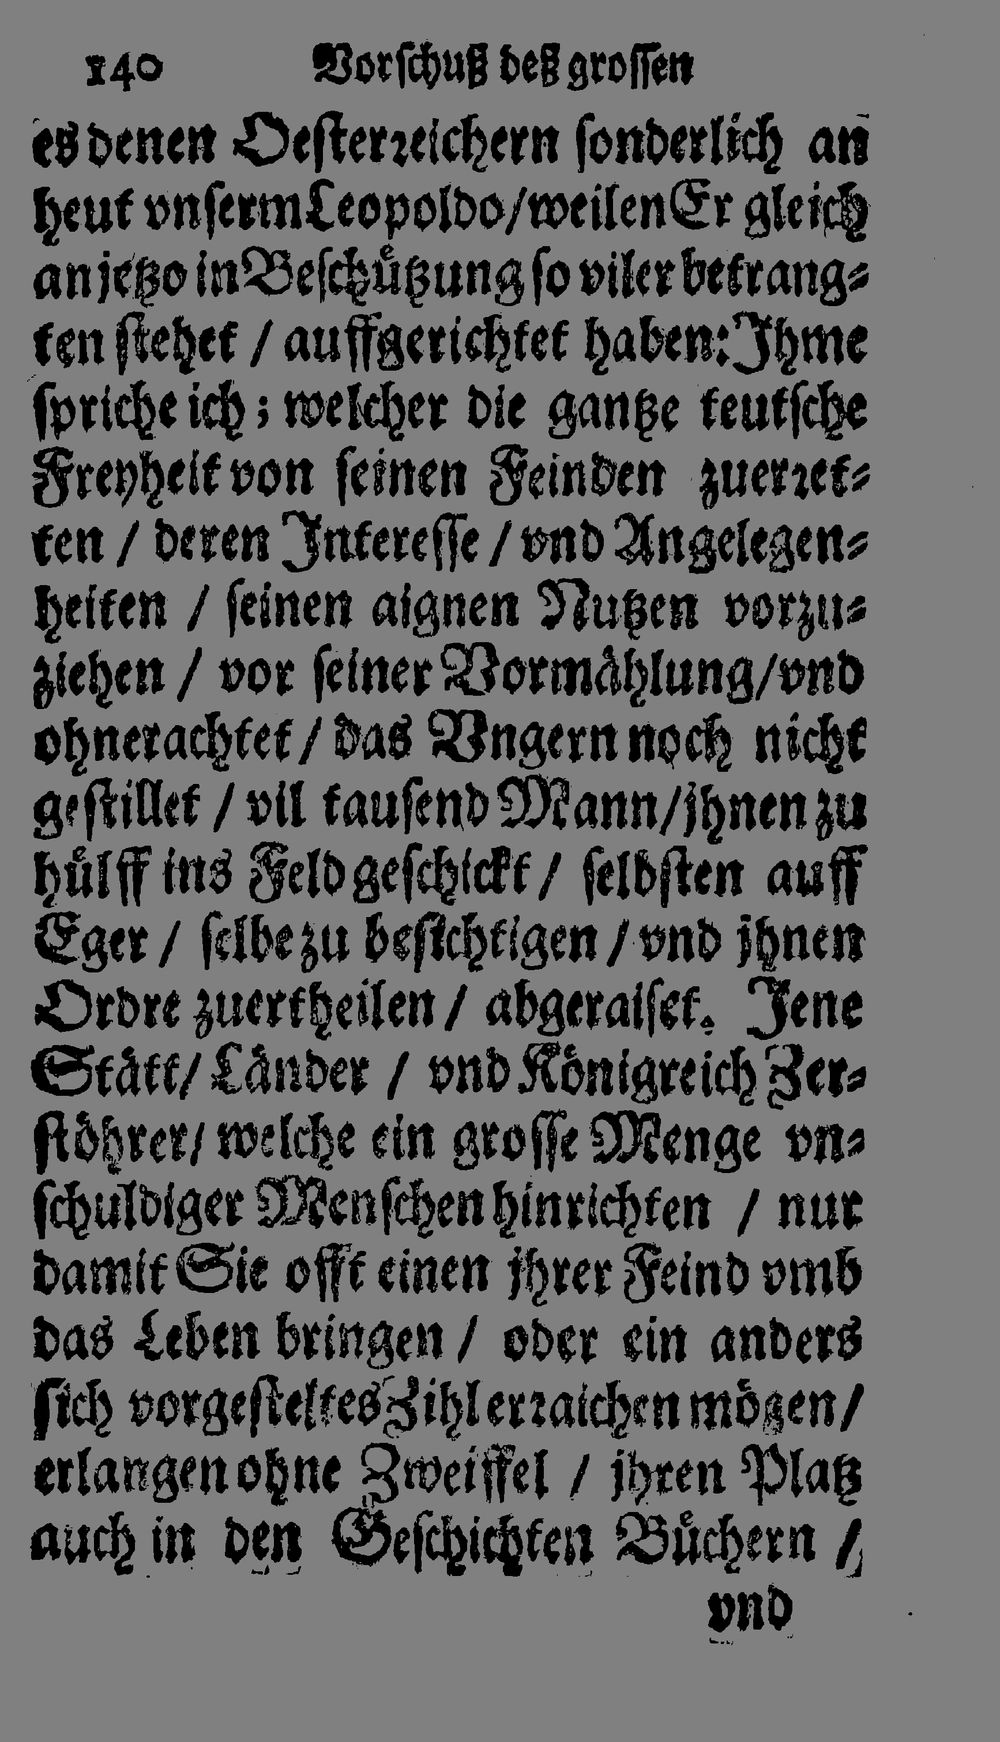 140 Vorschuß deß grossen
es denen Oesterreichern sonderlich an
heut vnserm Leopoldo/weilen Er gleich
an jetzo in Beschützung so viler betrang-
ten stehet / auffgerichtet haben: Ihme
spriche ich; welcher die gantze teutsche
Freyheit von seinen Feinden zuerret-
ten / deren Interesse / vnd Angelegen-
heiten / seinen aignen Nutzen vorzu-
ziehen / vor seiner Vormählung/vnd
ohnerachtet / das Vngern noch nicht
gestillet / vil tausend Mann/jhnen zu
hülff ins Feld geschickt / seldsten auff
Eger / selbe zu besichtigen / vnd jhnen
Ordre zuertheilen / abgeraiset. Jene
Stätt/ Länder / vnd Königreich Zer-
stöhrer/ welche ein grosse Menge vn-
schuldiger Menschen hinrichten / nur
damit Sie offt einen jhrer Feind vmb
das Leben bringen / oder ein anders
sich vorgesteltes Zihl erraichen mögen/
erlangen ohne Zweiffel / jhren Platz
auch in den Geschichten Büchern /
vnd